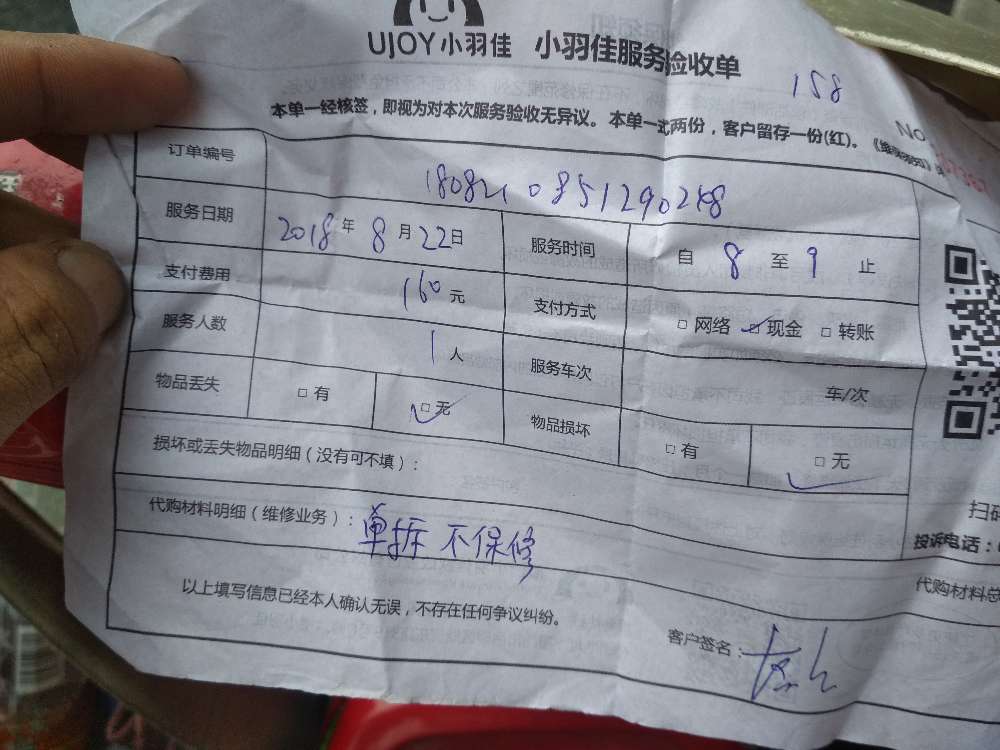 UJOY小羽佳 小羽佳服务验收单
158
本单一经核签，即视为对本次服务验收无异议。本单一式两份，客户留存一份(红)。
No
订单编号
服务日期 2018年8月22日 服务时间 自 8 至 9 止
支付费用 160元 支付方式 □ 网络 □ 现金 □ 转账
服务人数 1人 服务车次 车/次
物品丢失 □ 有 □ 无 物品损坏 □ 有 □ 无
损坏或丢失物品明细（没有可不填）：
扫码
代购材料明细（维修业务）：单拆 不保修
投诉电话：
代购材料总
以上填写信息已经本人确认无误，不存在任何争议纠纷。
客户签名：